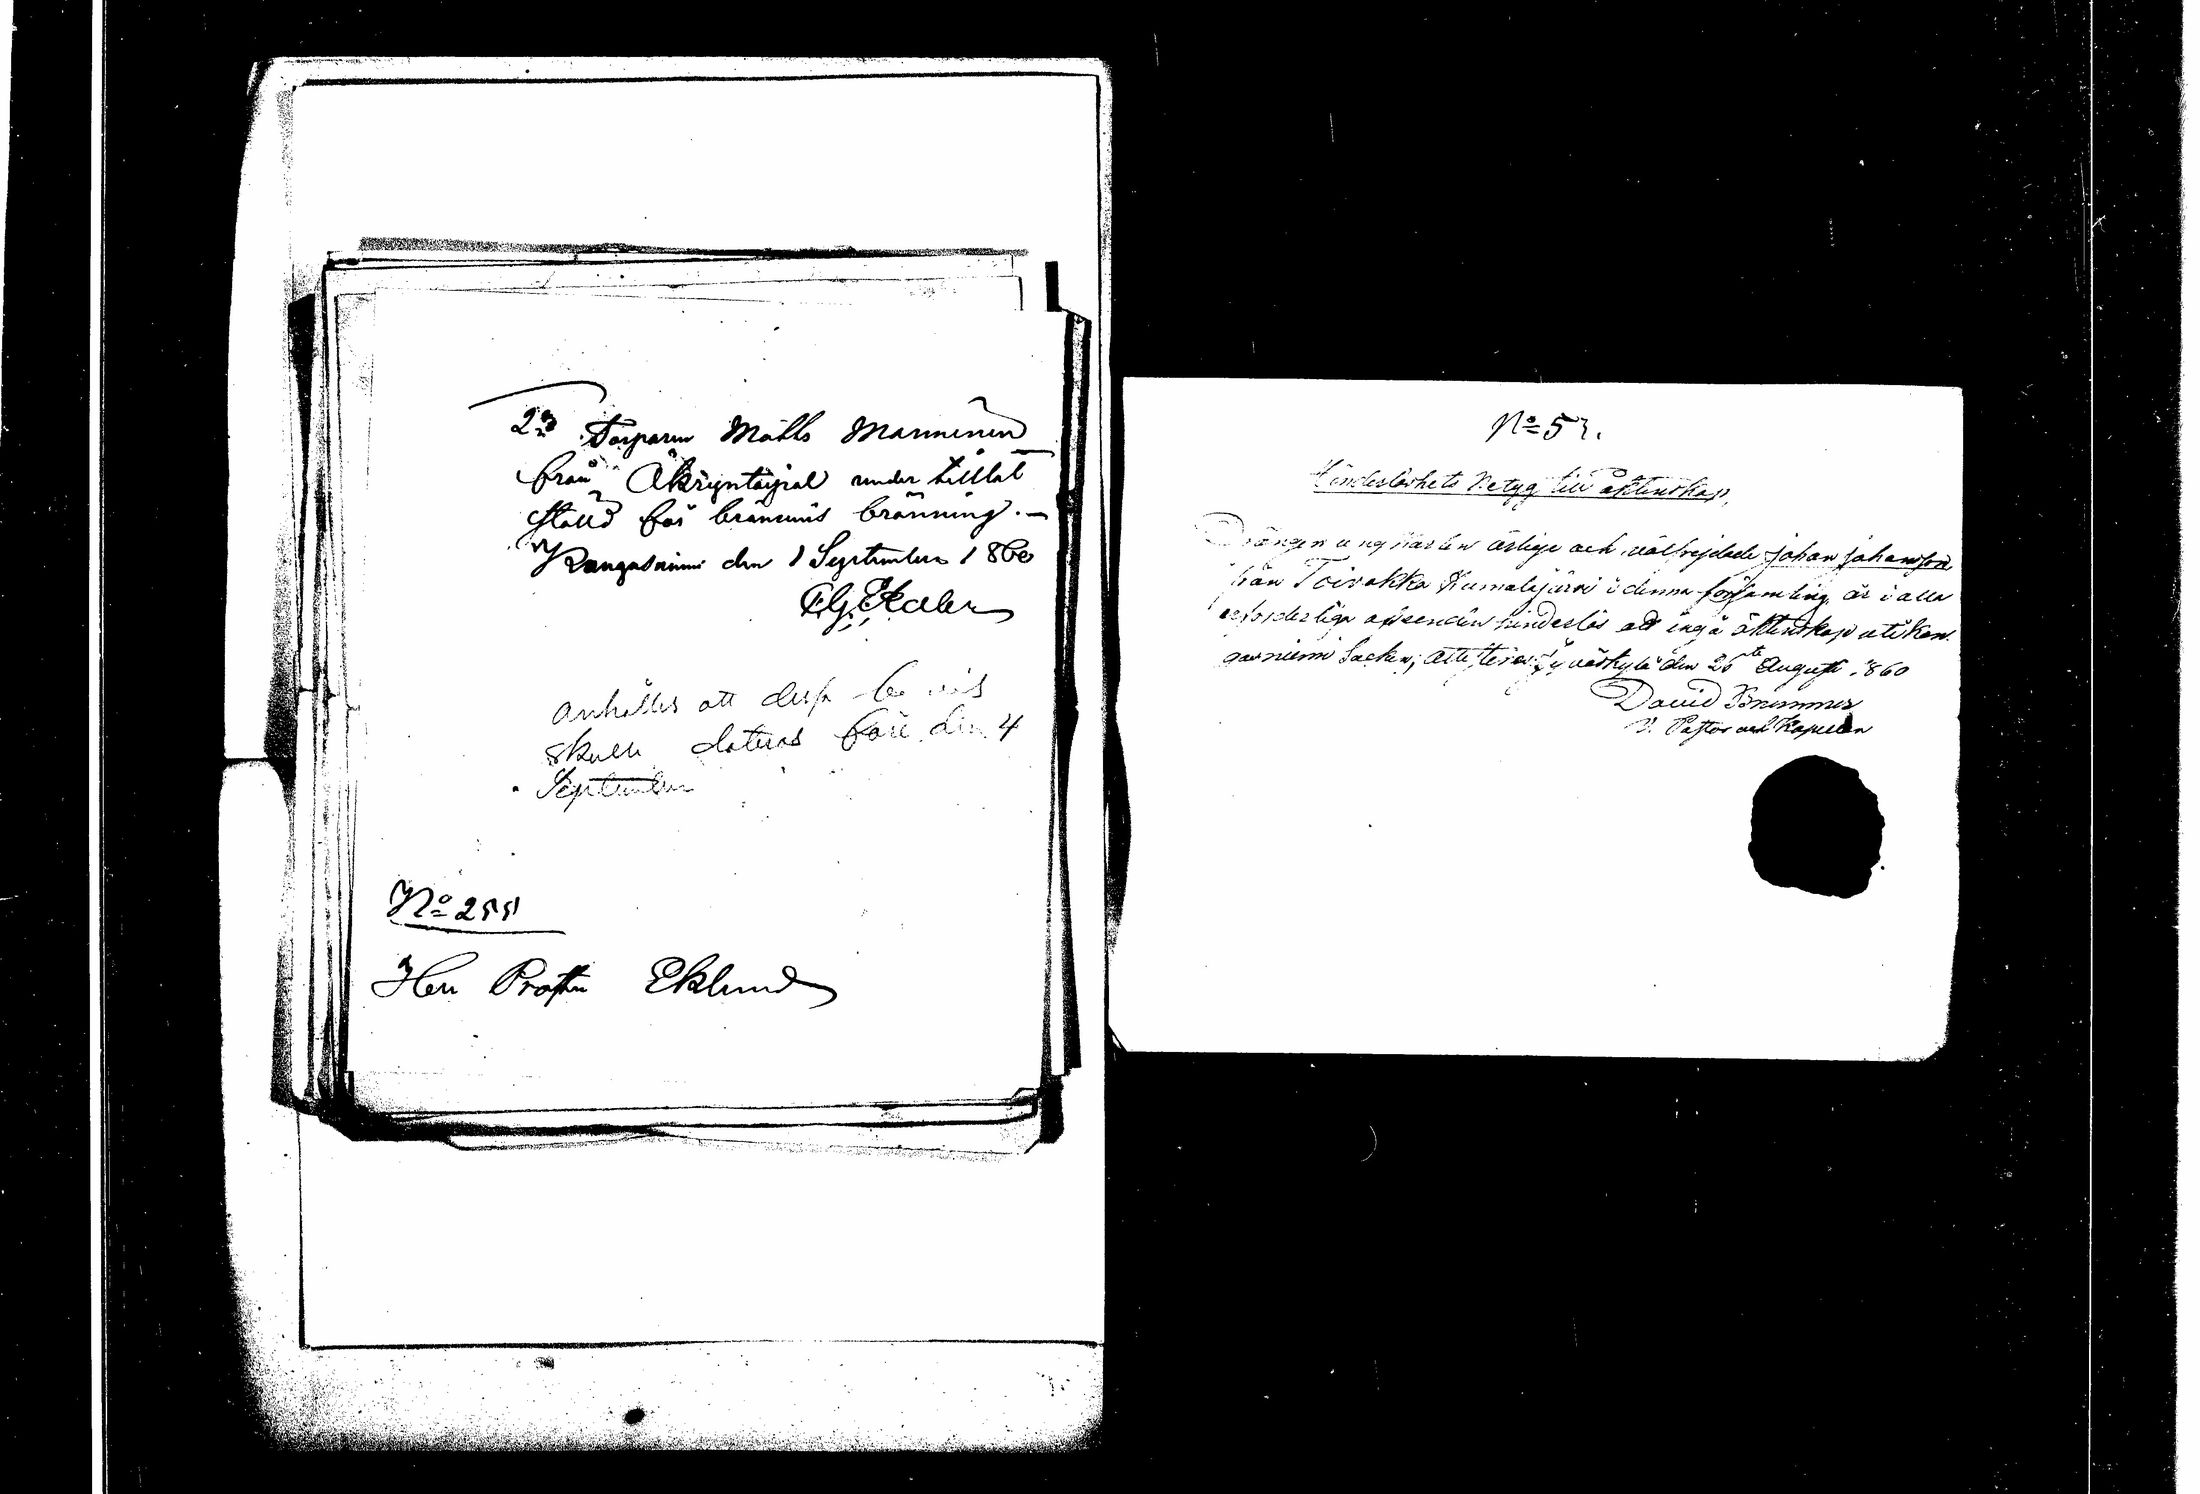 2o Torparen Matts Manninen
från Åkryntaipal under tilltal
ställd för bränvins bränning.—
Kangasniemi den 1 September 1860
anhålles att dessa bevis
skulle dateras före den 4
September
No 255
Herr Prosten Eklund
No 57.
Hinderslöshets Betyg till äktenskap,
Drängen ungkarlen ärlige och välfrejdade Johan Johansson
från Toivakka Humalajärvi i denna församling är i alla
erforderliga afseenden hinderslös att ingå äktenskap uti Kan-
gasniemi Socken; attesteras Jyväskylä den 25te Augusti 1860
David Brummer
V. Pastor och Kapellan